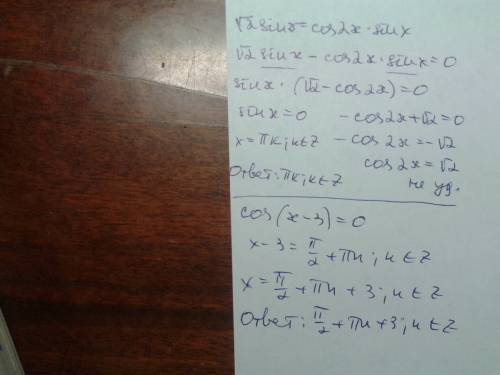 √2 sinx = cos2x · sinx
√2 sinx − cos2x · sinx = 0
sinx · (√2 − cos2x) = 0
sinx = 0 − cos2x + √2 = 0
x = πk; k ∈ Z − cos2x = −√2
cos2x = √2
Ответ: πk; k ∈ Z не уд.
cos(x − 3) = 0
x − 3 = π/2 + πn; n ∈ Z
x = π/2 + πn + 3; n ∈ Z
Ответ: π/2 + πn + 3; n ∈ Z